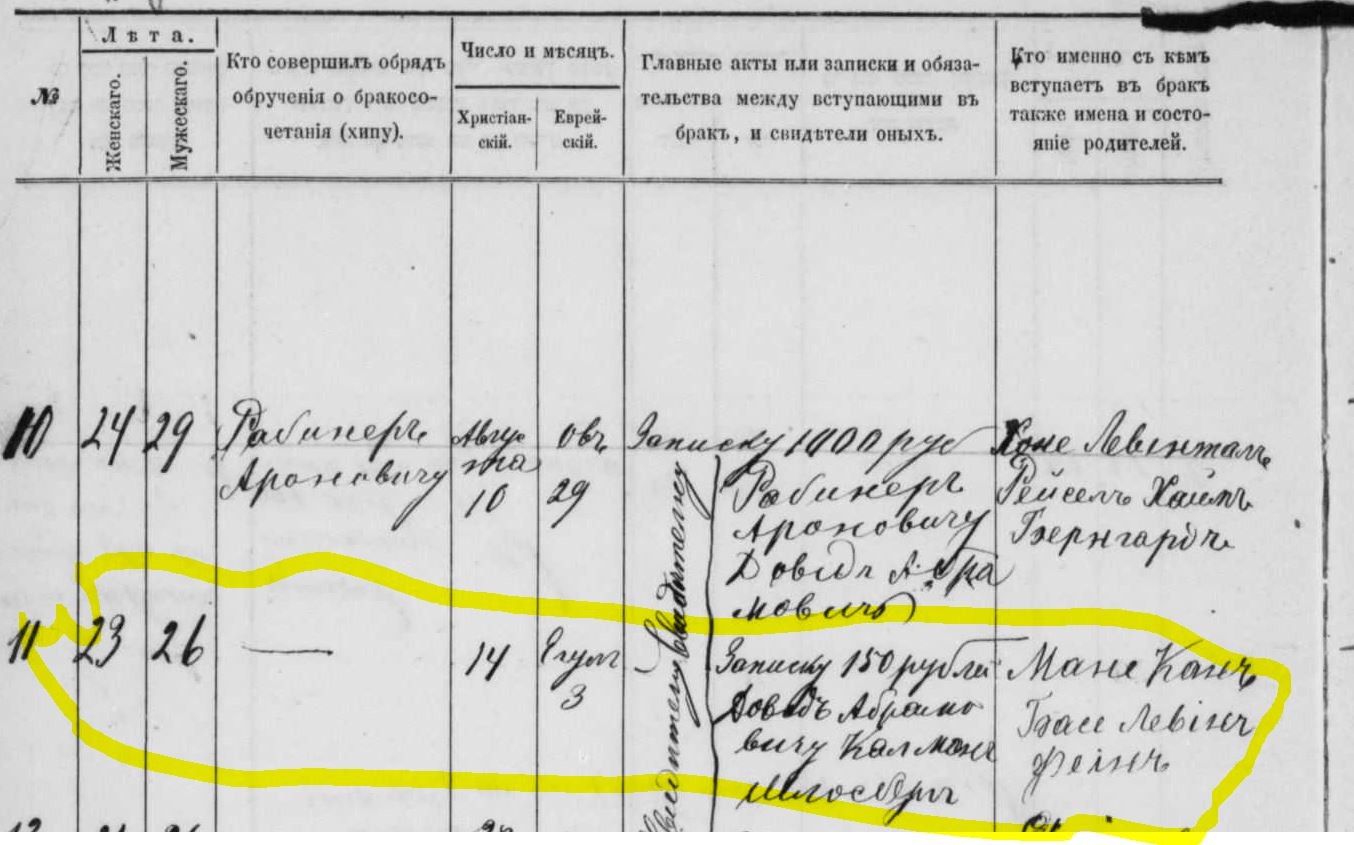 №
Лѣта.
Женскаго.
Мужескаго.
Кто совершилъ обрядъ
обрученія о бракосо-
четанія (хипу).
Число и мѣсяцъ.
Христіан-
скій.
Еврей-
скій.
Главные акты или записки и обяза-
тельства между вступающими въ
бракъ, и свидѣтели оныхъ.
Кто именно съ кѣмъ
вступаетъ въ бракъ
также имена и состо-
яніе родителей.
10 24 29
Рабинеръ
Ароновичу
Авгус
та
10
Овъ
29
Записку 1000 руб
Рабинеръ
Ароновичу
Довидъ Абра
мовичъ
Хоне Левинталь
Рейсель Хаимъ
Бернгардъ
11 23 26 —
14
Елулъ
3
Записку 150 рублей
Довидъ Абрамо
вичу Калмонъ
Шлосберъ
Мане Канъ
Басе Левинъ